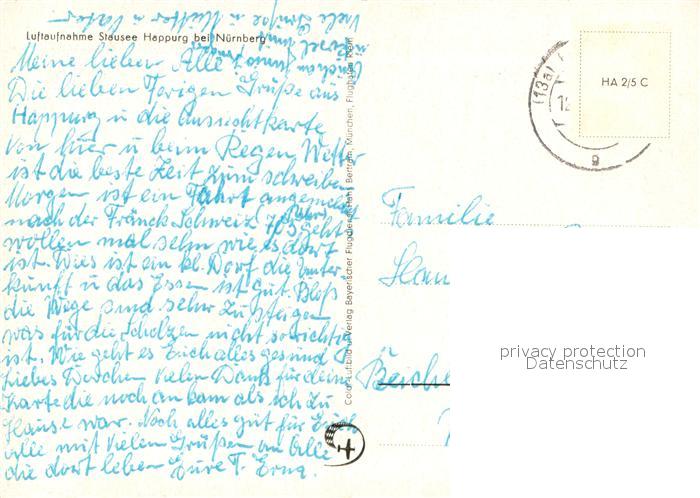 Viele Grüße u Mutter u Vater
Luftaufnahme Stausee Happurg bei Nürnberg
Meine lieben Alle
Die lieben Grüße aus
Happurg u die Ansichtkarte
von hier u beim Regen Wetter
ist die beste Zeit zum schreiben
Morgen ist ein Fahrt angemeldet
nach der Fränck Schweiz geht
wollen mal sehn wie es dort
ist. ist ein kl. Dorf die Unter
kunft u das Essen ist gut. Bloß
die Wege sind sehr zu steigen
was für die nicht so richtig
ist. Wie geht es Euch alles gesund
Liebes vielen Dank für deine
Karte die noch an kam als ich zu
Hause war. Noch alles gut für Euch
alle mit vielen Grüßen an Alle
die dort leben Eure T. Erna.
Color-Luftbild u. Verlag Bayerischer Flugdienst Hans Bertram, München, Flughafen Riem
(13a)
12
g
HA 2/5 C
Familie
privacy protection
Datenschutz